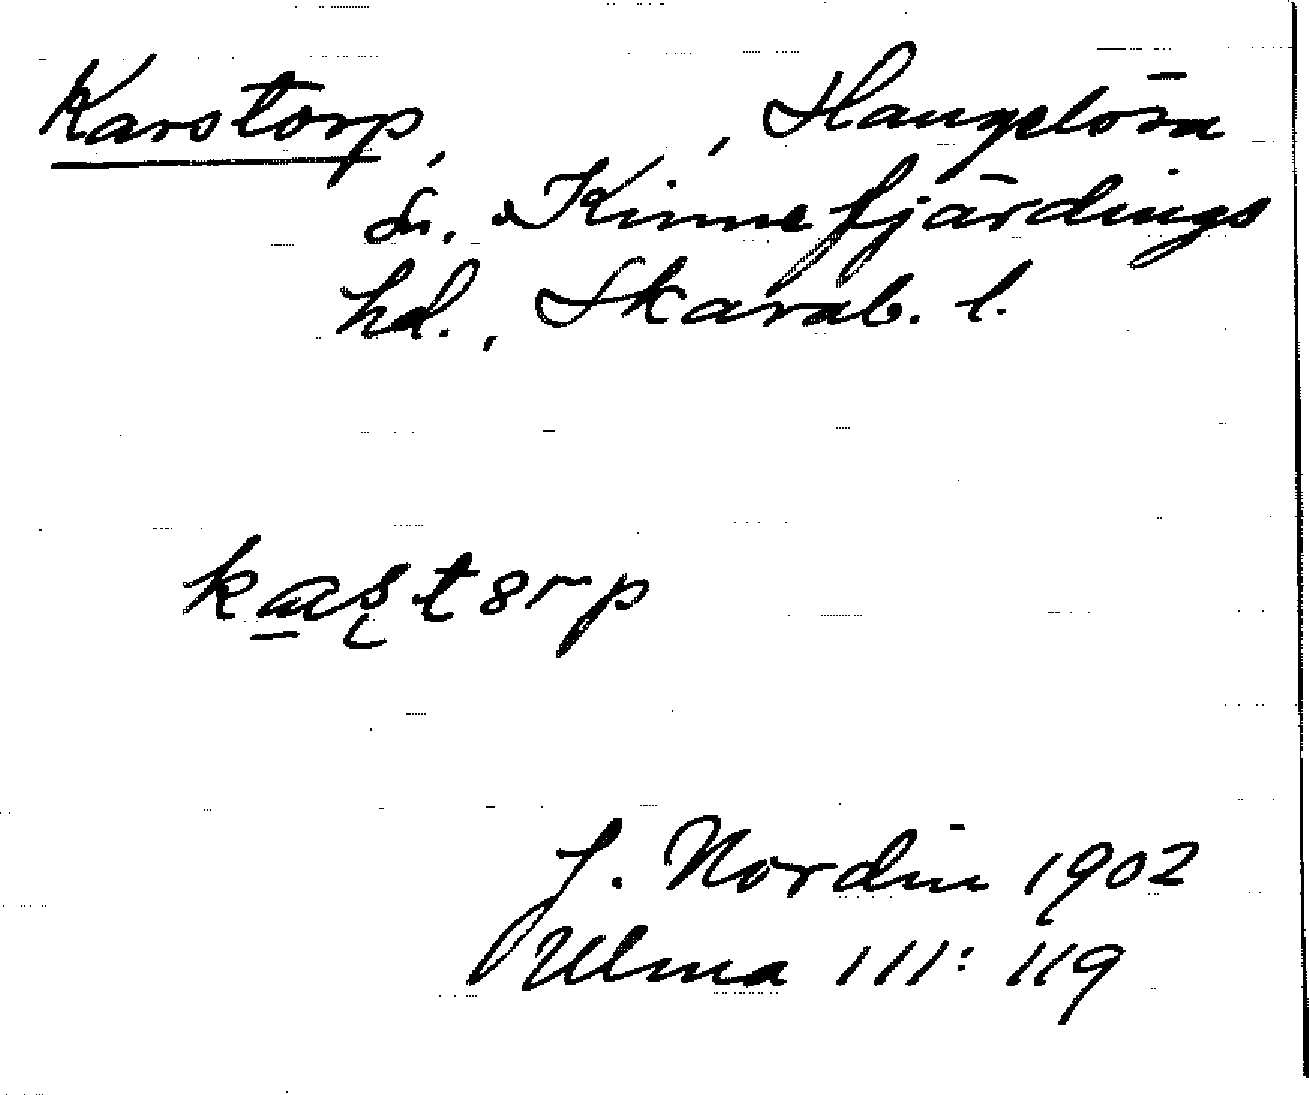 Karstorp, , Hangelösa
sn, Kinnefjärdings
hd., Skarab. l.
kaʂtɔrp
J. Nordin 1902
Ulma 111:119